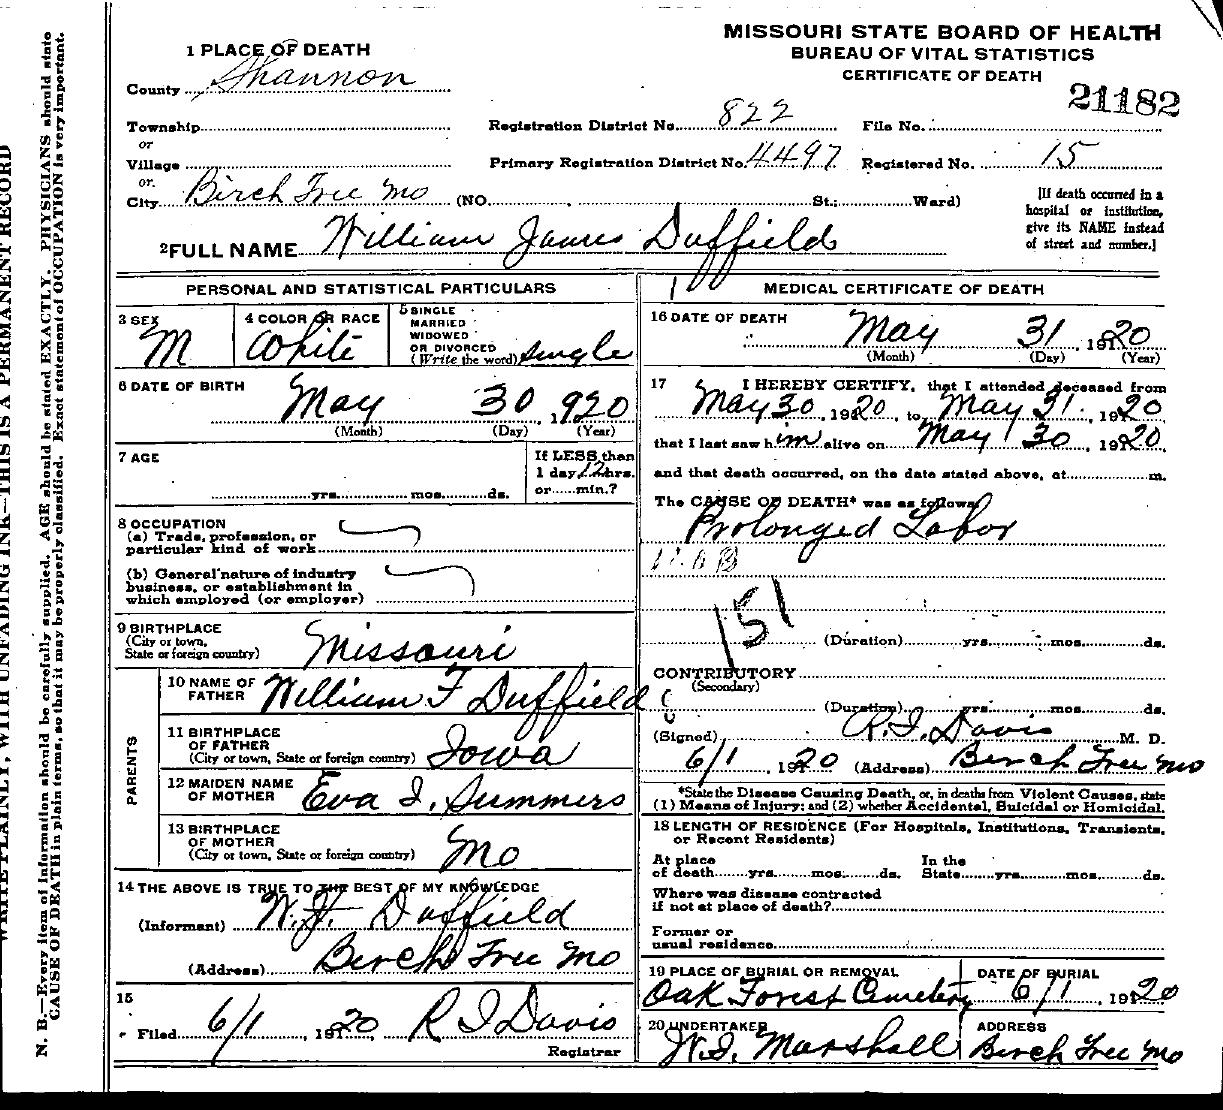 MISSOURI STATE BOARD OF HEALTH
BUREAU OF VITAL STATISTICS
CERTIFICATE OF DEATH
21182
1 PLACE OF DEATH
County Shannon
Township
or
Village
or
City Birch Tree Mo (NO. St.; Ward)
Registration District No. 822 File No.
Primary Registration District No. 4497 Registered No. 15
[If death occurred in a
hospital or institution,
give its NAME instead
of street and number.]
2 FULL NAME William James Duffield
PERSONAL AND STATISTICAL PARTICULARS
3 SEX M
4 COLOR OR RACE White
5 SINGLE
MARRIED
WIDOWED
OR DIVORCED
(Write the word) Single
6 DATE OF BIRTH May 30, 1920
(Month) (Day) (Year)
7 AGE
yrs. mos. ds.
If LESS than
1 day, 12 hrs.
or min.?
8 OCCUPATION
(a) Trade, profession, or
particular kind of work
(b) General nature of industry
business, or establishment in
which employed (or employer)
9 BIRTHPLACE
(City or town,
State or foreign country) Missouri
PARENTS
10 NAME OF
FATHER William F Duffield
11 BIRTHPLACE
OF FATHER
(City or town, State or foreign country) Iowa
12 MAIDEN NAME
OF MOTHER Eva I. Summers
13 BIRTHPLACE
OF MOTHER
(City or town, State or foreign country) Mo
14 THE ABOVE IS TRUE TO THE BEST OF MY KNOWLEDGE
(Informant) W.F. Duffield
(Address) Birch Tree Mo
15
Filed 6/1, 1920 R I Davis
Registrar
MEDICAL CERTIFICATE OF DEATH
16 DATE OF DEATH May 31, 1920
(Month) (Day) (Year)
17 I HEREBY CERTIFY, that I attended deceased from
May 30, 1920, to May 31, 1920
that I last saw him alive on May 30, 1920,
and that death occurred, on the date stated above, at m.
The CAUSE OF DEATH* was as follows:
Prolonged Labor
151
(Duration) yrs. mos. ds.
CONTRIBUTORY
(Secondary)
(Duration) yrs. mos. ds.
(Signed) R.I. Davis M. D.
6/1, 1920 (Address) Birch Tree Mo
*State the Disease Causing Death, or, in deaths from Violent Causes, state
(1) Means of Injury; and (2) whether Accidental, Suicidal or Homicidal.
18 LENGTH OF RESIDENCE (For Hospitals, Institutions, Transients,
or Recent Residents)
At place
of death yrs. mos. ds.
In the
State yrs. mos. ds.
Where was disease contracted
if not at place of death?
Former or
usual residence
19 PLACE OF BURIAL OR REMOVAL
Oak Forest Cemetery
DATE OF BURIAL
6/1, 1920
20 UNDERTAKER
W.I. Marshall
ADDRESS
Birch Tree Mo
WRITE PLAINLY, WITH UNFADING INK—THIS IS A PERMANENT RECORD
N. B.—Every item of information should be carefully supplied. AGE should be stated EXACTLY. PHYSICIANS should state
CAUSE OF DEATH in plain terms, so that it may be properly classified. Exact statement of OCCUPATION is very important.